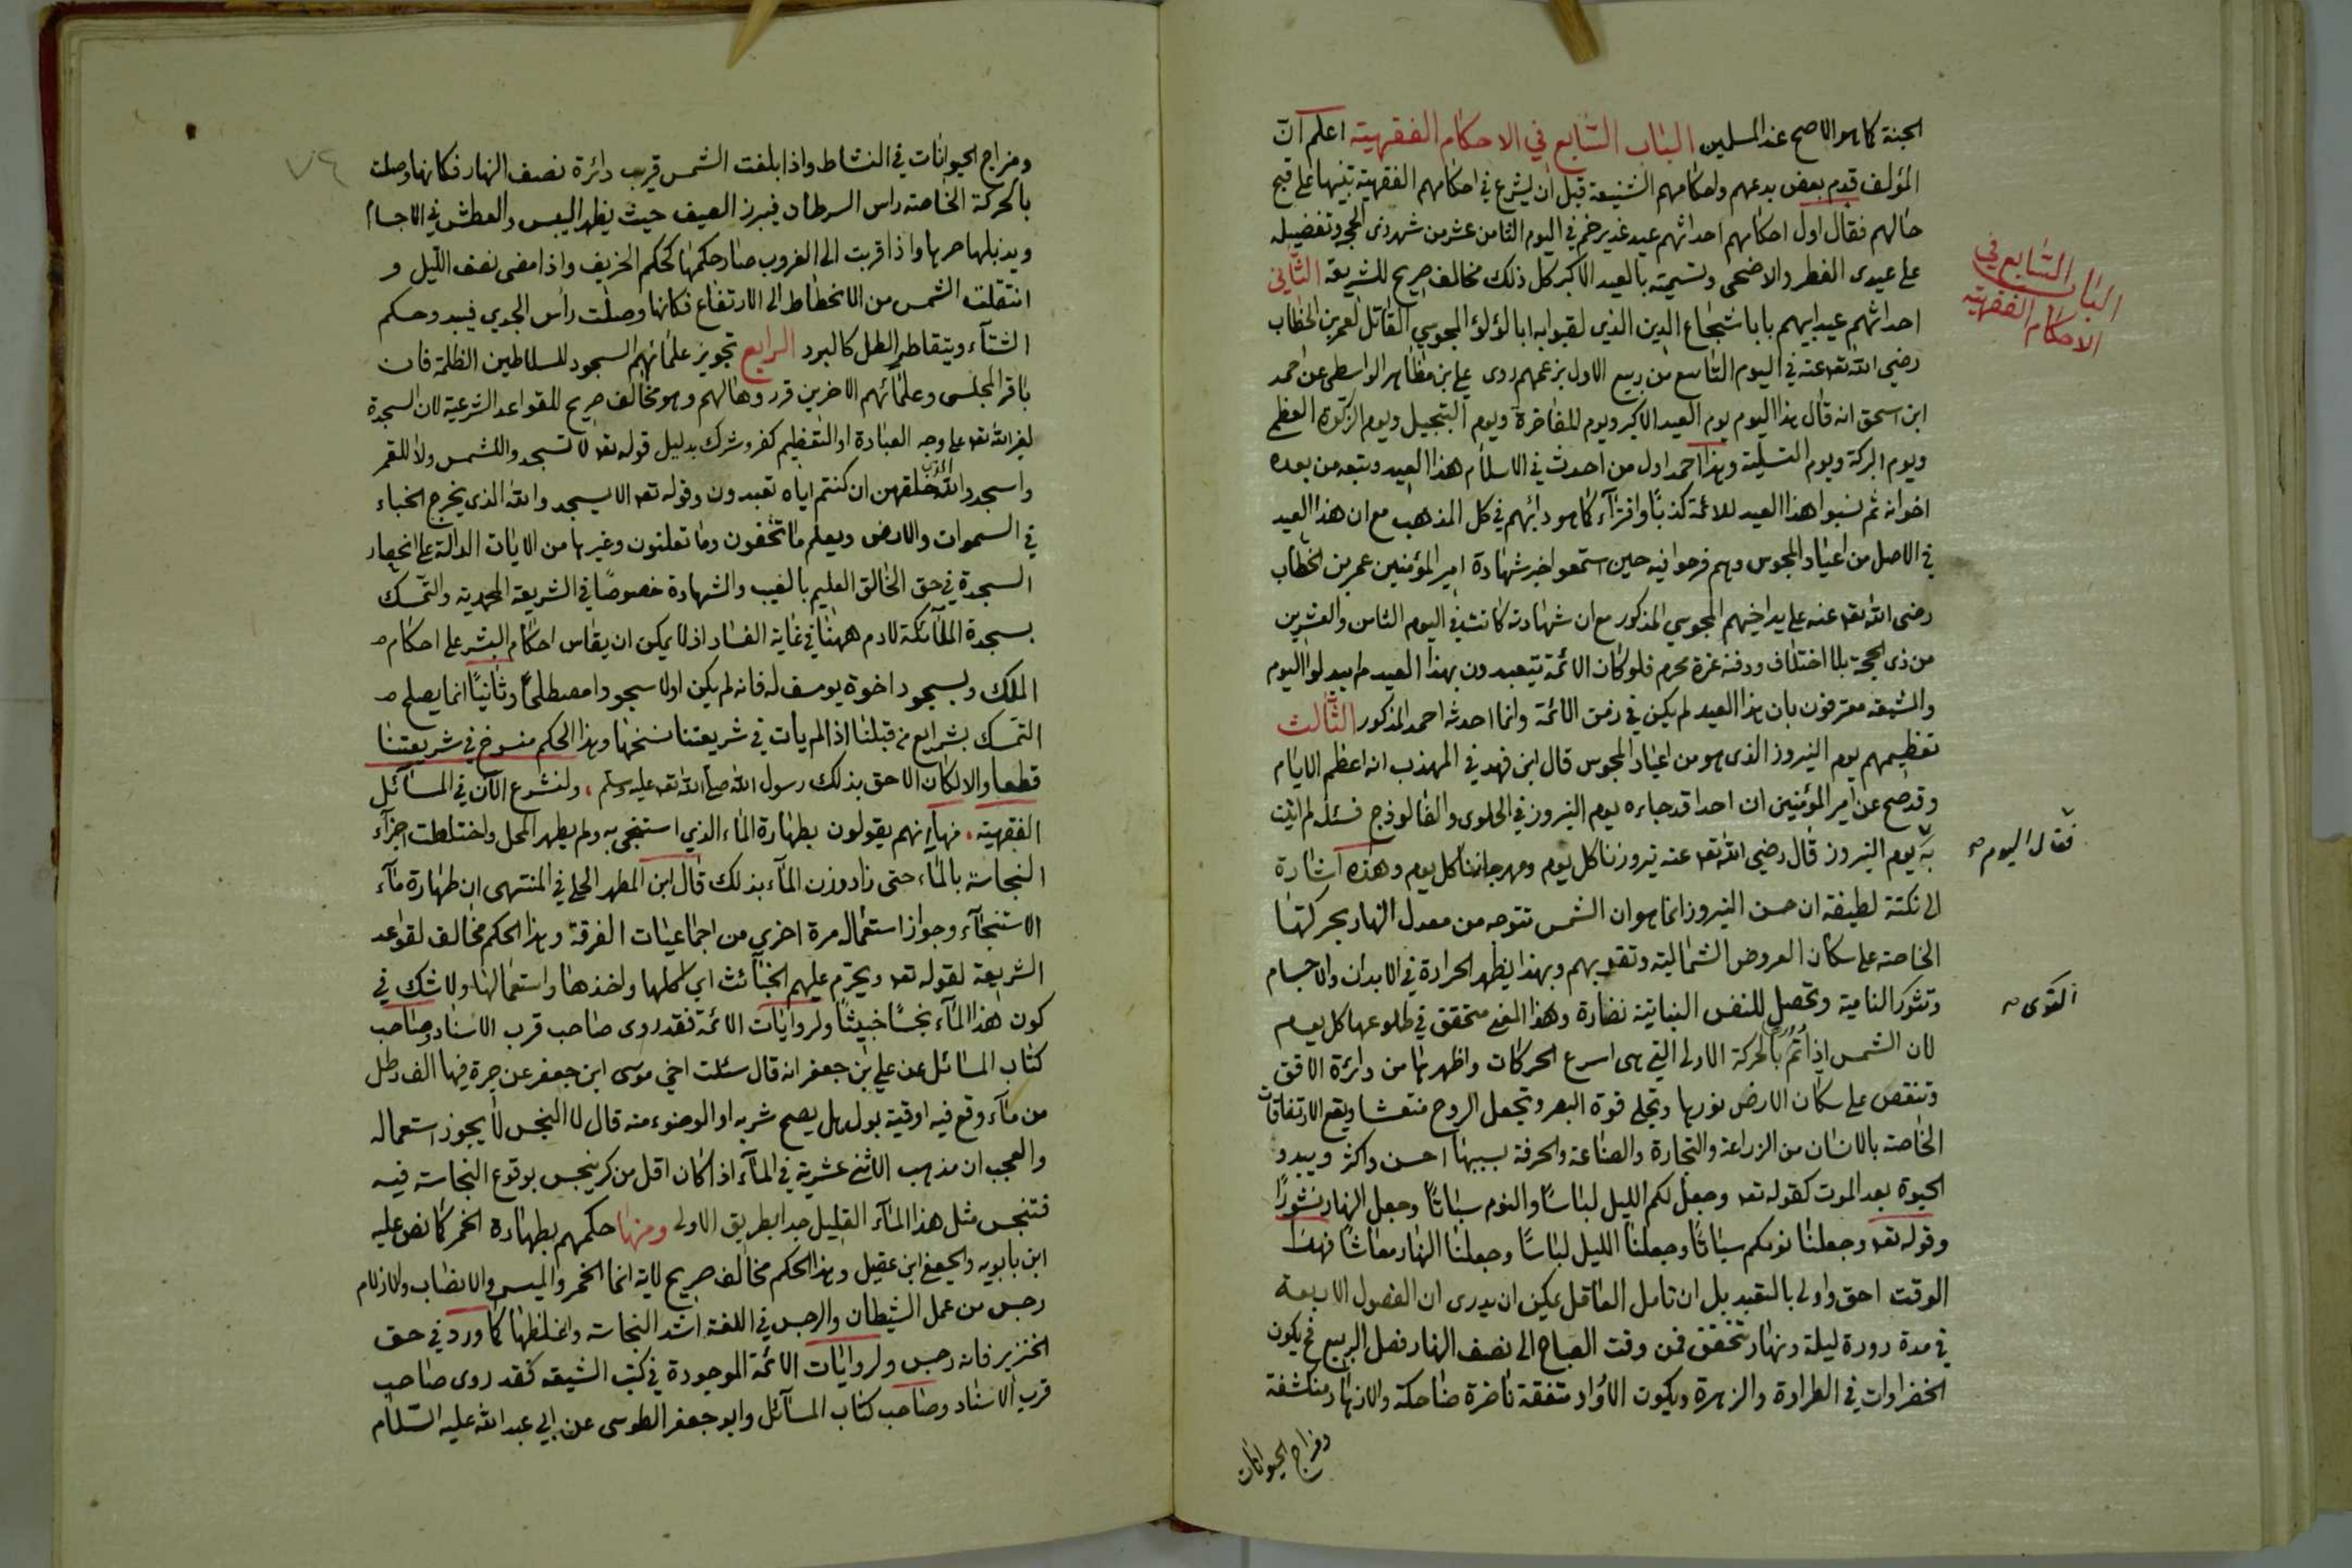 الجنة كما هو الاصح عند المسلمين الباب السابع في الاحكام الفقهية اعلم ان
المؤلف قدم بعض بدعهم واحكامهم الشنيعة قبل ان يشرع في احكامهم الفقهية تنبيها على قبح
حالهم فقال اول احكامهم احداثهم عيد غدير خم في اليوم الثامن عشر من شهر ذى الحجة وتفضيله
على عيدى الفطر والاضحى وتسميته بالعيد الاكبر كل ذلك مخالف صريح للشريعة الثاني
احداثهم عيد ابيهم بابا شجاع الدين الذي لقبوا به ابا لؤلؤ المجوسي القاتل لعمر بن الخطاب
رضي الله تعه عنه في اليوم التاسع من ربيع الاول بزعمهم روى علي بن مظاهر الواسطى عن احمد
ابن اسحق انه قال هذا اليوم يوم العيد الاكبر ويوم المفاخرة ويوم التبجيل ويوم الزكوة العظمى
ويوم البركة ويوم التسلية وهذا احمد اول من احدث في الاسلام هذا العيد وتبعه من بعده
اخوانه ثم نسبوا هذا العيد للائمة كذبًا وافتراء كما هو دأبهم في كل المذهب مع ان هذا العيد
في الاصل من اعياد المجوس وهم فرحوا فيه حين استمعوا خبر شهادة امير المؤمنين عمر بن الخطاب
رضى الله تعه عنه على يد اخيهم المجوسي المذكور مع ان شهادته كانت في اليوم الثامن والعشرين
من ذى الحجة بلا اختلاف ودفنه غرة محرم فلو كان الائمة يتعبدون بهذا العيد لم يبدلوا اليوم
والشيعة معترفون بان هذا العيد لم يكن في زمن الائمة وانما احدثه احمد المذكور الثالث
تعظيمهم يوم النيروز الذى هو من اعياد المجوس قال ابن فهد في المهذب انه اعظم الايام
وقد صح عن امير المؤمنين ان احدا قد جاءه يوم النيروز في الحلوى والفالوذج فسئله لم اتيت
به يوم النيروز قال رضي الله تعه عنه نيروزنا كل يوم ومهرجاننا كل يوم وهذه اشارة
الى نكتة لطيفة ان حسن النيروز انما هو ان الشمس تتوجه من معدل النهار بحركتها
الخاصة على سكان العروض الشمالية وتقدبهم وبهذا يظهر الحرارة في الابدان والاجسام
وتثور النامية وتحصل للنفس النباتية نضارة وهذا المعنى متحقق في طلوعها كل يوم
لان الشمس اذا تمر بالحركة الاولى التي هى اسرع الحركات واظهرها من دائرة الافق
وتنقص على سكان الارض نورها وتجلى قوة البصر وتجعل الروح منتعشا ويقع الارتفاقات
الخاصة بالانسان من الزراعة والتجارة والصناعة والحرفة بسببها احسن واكثر ويبدو
الحيوة بعد الموت كقوله تعه وجعل لكم الليل لباسًا والنوم سباتًا وجعل النهار نشورًا
وقوله تعه وجعلنا نومكم سباتًا وجعلنا الليل لباسًا وجعلنا النهار معاشًا فهذا
الوقت احق واولى بالتقيد بل ان تامل العاقل يمكن ان يدرى ان الفصول الاربعة
في مدة دورة ليلة ونهار تتحقق فمن وقت الصباح الى نصف النهار فصل الربيع فح يكون
الخضراوات في الطراوة والزهرة ويكون متفقة ناضرة ضاحكة والازهار منكشفة
ومزاج الحيوانات
الباب السابع في
الاحكام الفقهية
فقال اليوم صح
القوى صح
٧٤
ومزاج الحيوانات في النشاط واذا بلغت الشمس قريب دائرة نصف النهار فكانها وصلت
بالحركة الخاصة راس السرطان فيبرز الصيف حيث يظهر اليبس والعطش في الاجسام
ويذبلها حرها واذا قربت الى الغروب صار حكمها كحكم الخريف واذا مضى نصف الليل و
انتقلت الشمس من الانحطاط الى الارتفاع فكانها وصلت رأس الجدي فيبدو حكم
الشتآء ويتقاطر الطل كالبرد الرابع تجويز علمائهم السجود للسلاطين الظلمة فان
باقر المجلسى وعلمائهم الاخرين قرروها لهم وهو مخالف صريح للقواعد الشرعية لان السجدة
لغير الله تعه على وجه العبادة او التعظيم كفر وشرك بدليل قوله تعه لا تسجدوا للشمس ولا للقمر
واسجدوا لله الذي خلقهن ان كنتم اياه تعبدون وقوله تعه الا يسجدوا لله الذي يخرج الخباء
في السموات والارض ويعلم ما تخفون وما تعلنون وغيرها من الايات الدالة على انحصار
السجدة في حق الخالق العليم بالغيب والشهادة خصوصًا في الشريعة المحمدية والتمسك
بسجدة الملآئكة لادم ههنا في غاية الفساد اذ لا يمكن ان يقاس احكام البشر على احكام
الملك وبسجود اخوة يوسف له فانه لم يكن اولا سجودا مصطلحًا وثانيًا انما يصلح
التمسك بشرايع من قبلنا اذا لم يأت في شريعتنا نسخها وهذا الحكم منسوخ في شريعتنا
قطعا والا لكان الاحق بذلك رسول الله صلى الله تعه عليه وسلم ولنشرع الآن في المسائل
الفقهية منها انهم يقولون بطهارة الماء الذي استنجى به ولم يطهر المحل واختلطت اجزآء
النجاسة بالمآء حتى زاد وزن المآء بذلك قال ابن المطهر الحلي في المنتهى ان طهارة مآء
الاستنجآء وجواز استعماله مرة اخرى من اجماعيات الفرقة وهذا الحكم مخالف لقواعد
الشريعة لقوله تعه ويحرم عليهم الخبآئث اى اكلها واخذها واستعمالها ولا شك في
كون هذا المآء نجسًا خبيثًا ولروايات الائمة فقد روى صاحب قرب الاسناد وصاحب
كتاب المسائل عن علي بن جعفر انه قال سئلت اخي موسى ابن جعفر عن جرة فيها الف رطل
من مآء وقع فيه اوقية بول هل يصح شربه او الوضوء منه قال لا النجس لا يجوز استعماله
والعجب ان مذهب الاثنى عشرية في المآء اذا كان اقل من كر ينجس بوقوع النجاسة فيه
فتنجس مثل هذا المآء القليل جدا بطريق الاولى ومنها حكمهم بطهارة الخمر كما نص عليه
ابن بابويه والجعفى ابن عقيل وهذا الحكم مخالف صريح لاية انما الخمر والميسر والانصاب والازلام
رجس من عمل الشيطان والرجس في اللغة اشد النجاسة واغلظها كما ورد في حق
الخنزير فانه رجس ولروايات الائمة الموجودة في كتب الشيعة فقد روى صاحب
قرب الاسناد وصاحب كتاب المسآئل وابو جعفر الطوسى عن ابي عبد الله عليه السلام